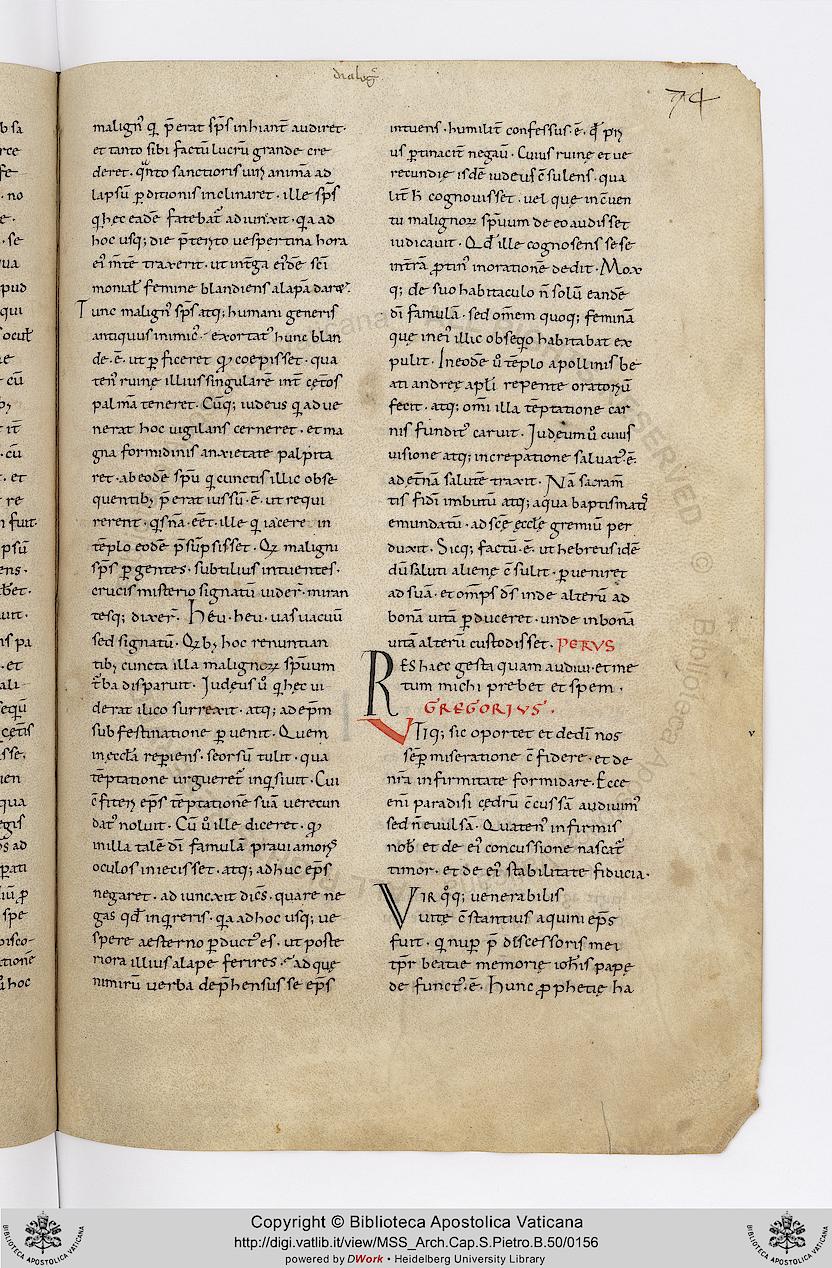 dialog̃
74
malign᷒ q̇ p̄erat sp̄s inhiant̃ audiret·
et tanto sibi factū lucrū grande cre
deret· q̇nto sanctioris uiri animā ad
lapsū ꝑditionis inclinaret· ille sp̄s
q̇ hec eadē fatebat̃ adiunxit· q̇a ad
hoc usq; die p̄terito uespertina hora
ei᷒ mēte traxerit· ut int̃ga ei᷒dē sc̄i
monial̃ femine blandiens alapā daret·
Tunc malign᷒ sp̄s atq; humani generis
antiquus inimic᷒ exortat᷒ hunc blan
de·ē· ut ꝑficeret qđ coepisset· qua
ten᷒ ruinę illius singularē int̃ cęt̃os
palmā teneret· Cūq; iudeus q̇ adue
nerat hoc uigilans cerneret· et ma
gna formidinis anxietate palpita
ret· ab eodē sp̄u q̇ cunctis illic obse
quentib; p̄erat iussū·ē· ut requi
rerent· q̇snā eēt ille q̇ iacere in
tēplo eodē p̄sūpsisset· Qē maligni
sp̄s ꝑgentes· subtilius intuentes·
crucis misterio signatū uider̃· miran
tesq; dixer̃· Heu· heu· uas uacuū
sed signatū· Qƀ; hoc renuntian
tib; cuncta illa malignoꝝ sp̄uum
t̃ba disparuit· Iudeus ů q̇ hec ui
derat ilico surrexit· atq; ad ep̄m
sub festinatione ꝑuenit· Quem
in ęccl̃a reꝑiens· seorsū tulit· qua
tēptatione urgueret̃ inq̇siuit· Cui
c̄fiteri ep̄s tēptationē suā uerecun
dat᷒ noluit· Cū ů ille diceret· qđ
in illa talē dī famulā praui amoris
oculos iniecisset· atq; adhuc ep̄s
negaret· adiuncxit dicēs· quare ne
gas qđ inq̇reris· q̇a ad hoc usq; ue
spere aesterno ꝑduct᷒ es· ut poste
riora illius alape ferires· ad quę
nimirū uerba dep̄hensus se ep̄s
intuens· humilit̃ confessus·ē· qđ pri
us ꝑtinacit̃ negaū· Cuius ruinę et ue
recundię isdē iudeus c̄sulens· qua
lit̃ ħ cognouisset· uel quę in c̄uen
tu malignoꝝ sp̄uum de eo audisset
iudicauit· Qđ ille cognosens sese
in t̃rā ꝓtin᷒ in orationē dedit· Mox
q; de suo habitaculo n̄ solū eandē
dī famulā· sed om̄em quoq; feminā
quę in ei᷒ illic obseq̇o habitabat ex
pulit· In eodē ů tēplo apollinis be
ati andreę apl̃i repente oratoriū
fecit· atq; om̄i illa tēptatione car
nis fundit᷒ caruit· Iudeum ů cuius
uisione atq; increpatione saluat᷒·ē·
ad et̃nā salutē traxit· Nā sacram̃
tis fidī imbutū atq; aqua baptismatis
emundatū· ad scę ęcclę gremiū per
duxit· Sicq; factū·ē· ut hebreus idē
dū saluti alienę c̄sulit· ꝑueniret
ad suā· et om̄ps ds̄ inde alterū ad
bonā uitā ꝑduceret· unde in bona
uita alterū custodisset· PETRVS
RES haec gesta quam audiui· et me
tum michi prebet et spem·
GREGORIVS·
VTIq; sic oportet et dedī nos
sēꝑ miseratione c̄fidere· et de
nr̄a infirmitate formidare· Ecce
enī paradisi cędrū c̄cussā audiuim᷒
sed n̄ euulsā· Quaten᷒ infirmis
nob̃ et de ei᷒ concussione nascat̃
timor· et de ei᷒ stabilitate fiducia·
VIR q̊q; uenerabilis
uitę c̄stantius aquini ep̄s
fuit· q̇ nuꝑ p̄decessoris mei
tp̄r beatae memorię ioh̄is papę
de funct᷒·ē· Hunc ꝓphetię ha
Copyright © Biblioteca Apostolica Vaticana
http://digi.vatlib.it/view/MSS_Arch.Cap.S.Pietro.B.50/0156
powered by DWork • Heidelberg University Library